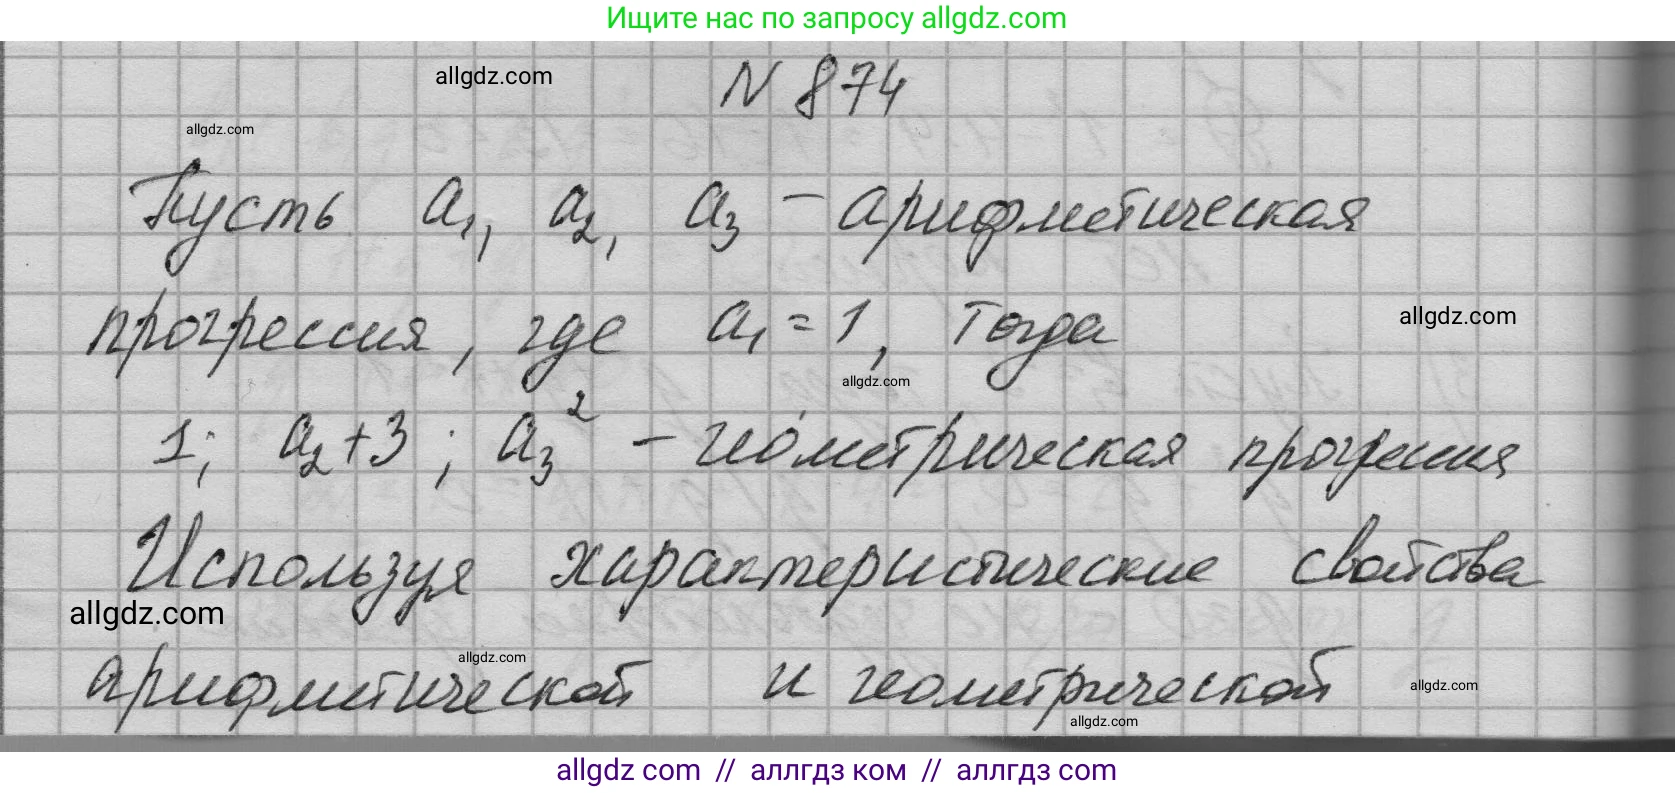 Ищите нас по запросу allgdz.com
allgdz.com
N 874
allgdz.com
Пусть a₁, a₂, a₃ – арифметическая
прогрессия, где a₁ = 1, Тогда
allgdz.com
allgdz.com
1; a₂+3; a₃² – геометрическая прогрессия
Используя характеристические свойства
allgdz.com
арифметической и геометрической
allgdz.com
allgdz.com
allgdz.com
allgdz com // аллгдз ком // аллгдз com